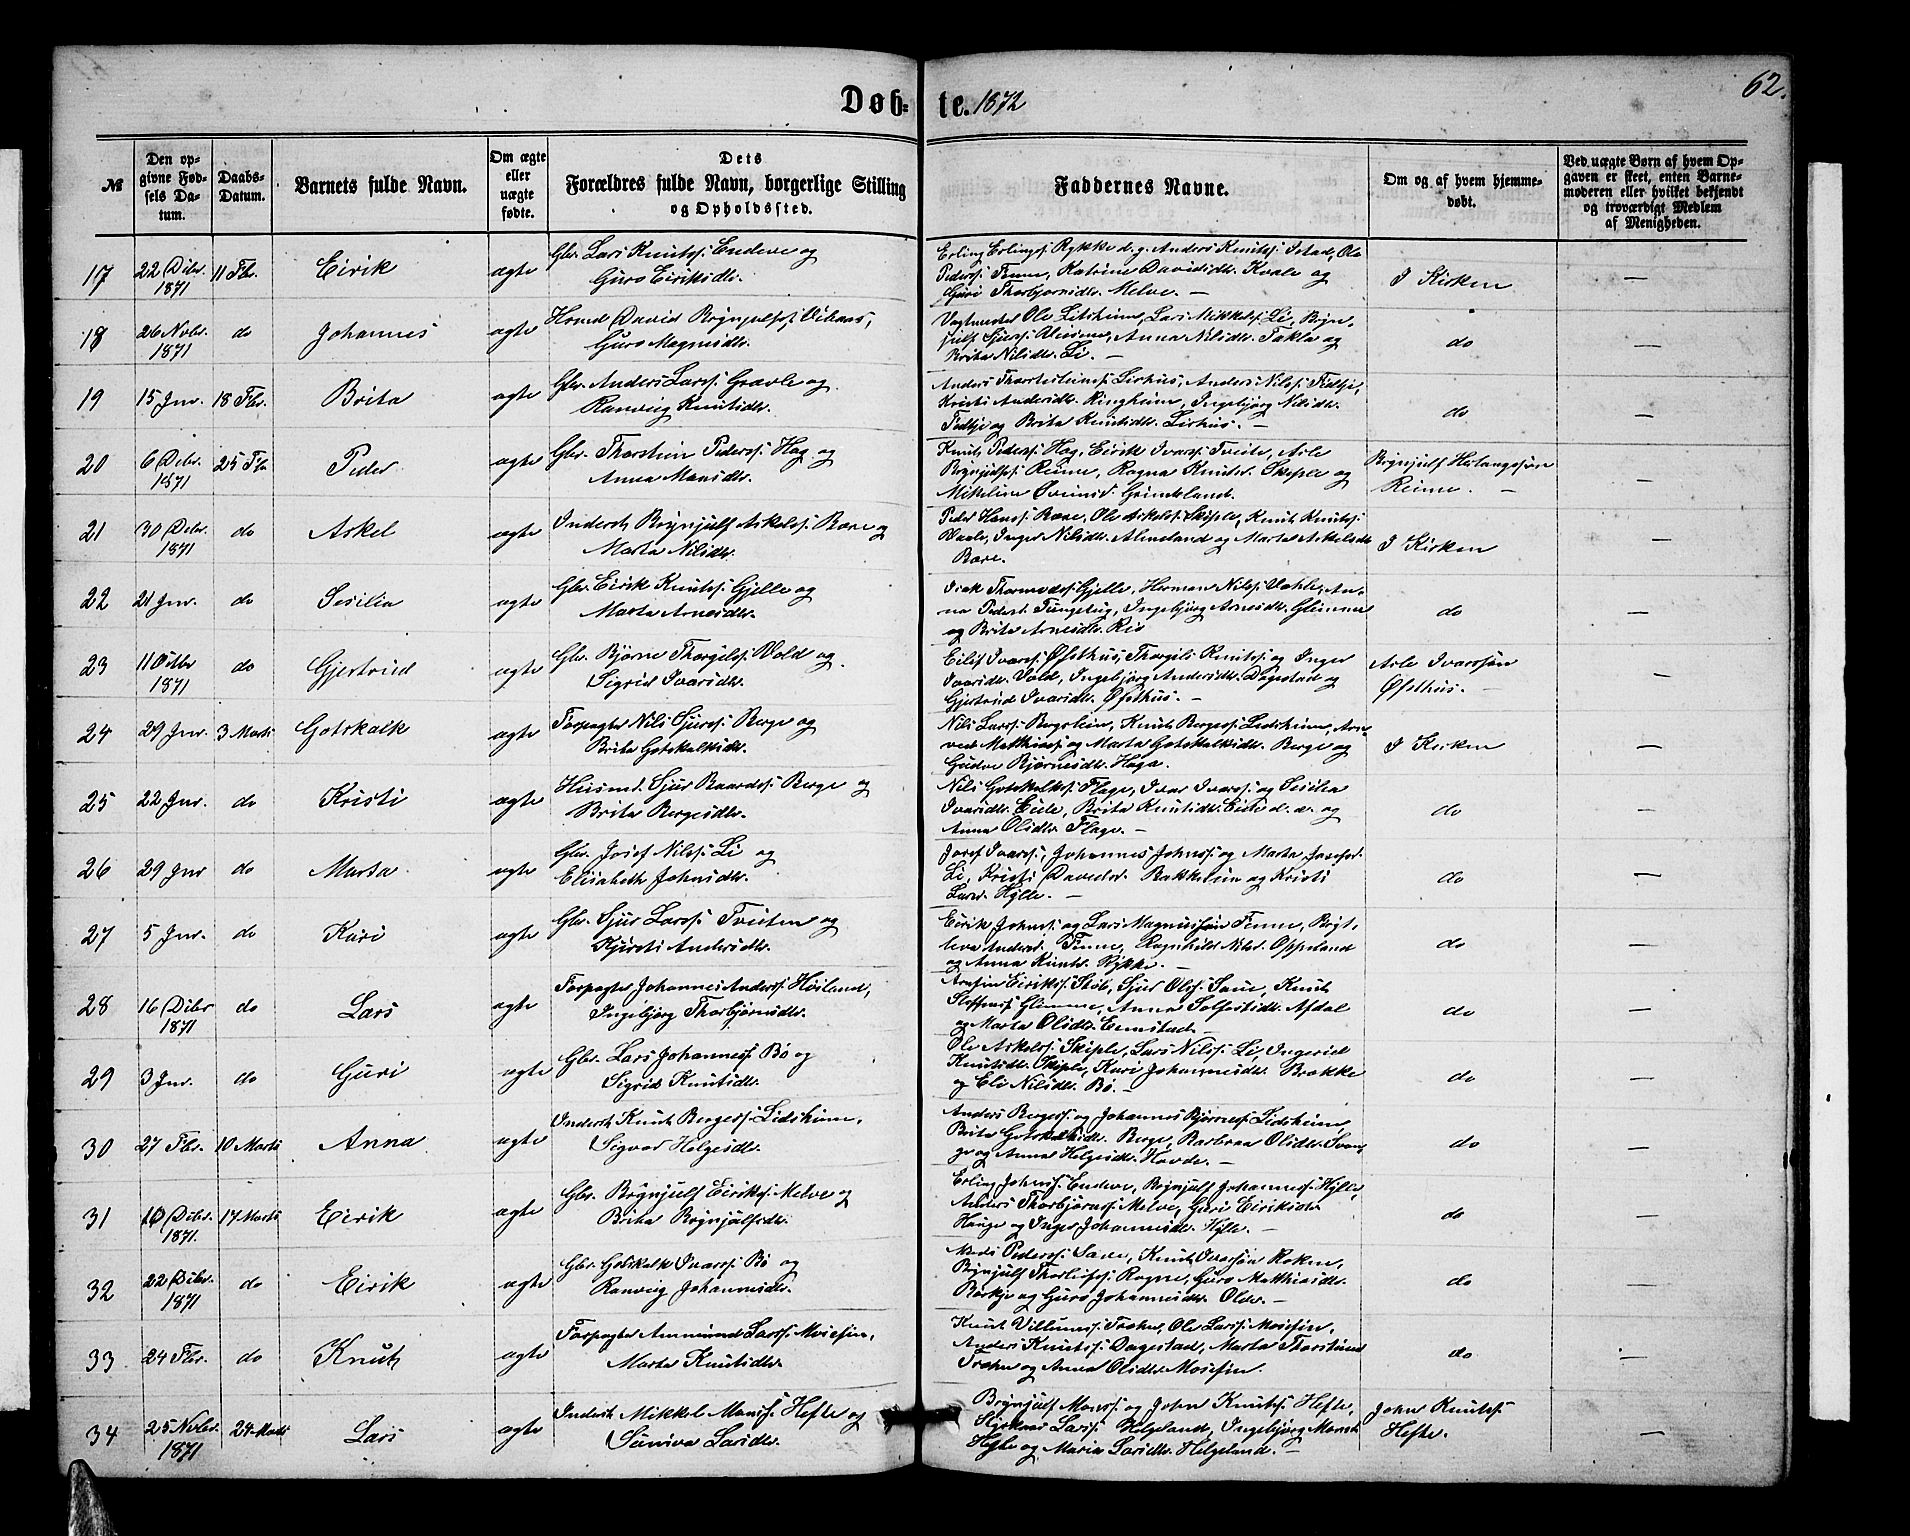 Døb-te. 1872
62.
№
Den opgivne Fødsels Datum.
Daabs-Datum.
Barnets fulde Navn.
Om ægte eller uægte fødte.
Dets Forældres fulde Navn, borgerlige Stilling og Opholdssted.
Faddernes Navne.
Om og af hvem hjemmedøbt.
Ved uægte Børn af hvem Opgaven er skeet, enten Barnemoderen eller hvilket bekjendt og troværdigt Medlem af Menigheden.
17 22 Dcbr. 1871 11 Fbr. Eirik ægte
Gbr. Lars Knutss. Endeve og
Guro Eiriksdtr.
Erling Erlingss. Rykke d. y. Anders Knutss. Istad, Ole
Pederss. Finne, Katrine Davidsdtr. Kvale og
Guri Thorbjørnsdtr. Melve. —
I Kirken —
18 26 Novbr. 1871 do Johannes ægte
David Brynjulfss.
Guro Magnesdtr.
Ole Lidsheim, Lars Mikkelss. Li, Bryn-
julf Sjurss. Anna Nilsdtr. Takla og
Brita Nilsdtr. Li. —
do —
19 15 Jnr. 18 Fbr. Brita ægte
Gbr. Anders Larss. Grovle og
Ranveig Knutsdtr.
Anders Thorsteinss. Lirhus, Anders Nilss. Fedtje,
Kristi Andersdtr. Ringheim, Ingebjørg Nilsdtr.
Fedtje og Brita Knutsdtr. Lirhus. —
do —
20 6 Dcbr. 1871 25 Fbr. Peder ægte
Gbr. Thorstein Pederss. Hag og
Anna Monsdtr.
Knut Pederss. Hag, Eirik Ivarss. Tveite, Arle
Brynjulfss. Reime, Ragna Knutsd. Skiple og
Mikeline Sveinsd. Grindeland.
Brynjulf Herlaugssøn
Reime. — —
21 30 Dcbr. 1871 do Askel ægte
Inderst Brynjulf Askelss. Børe og
Marta Nilsdtr.
Peder Hanss. Børe, Ole Askelss. Skiple, Knut Knutss.
Inger Nilsdtr. Almeland og Marta Askelsdtr.
Børe.
I Kirken —
22 21 Jnr. do Sesilia ægte
Gbr. Eirik Knutss. Gjelle og
Marta Arnesdtr.
Isak Thormodss. Gjelle, Herman Nilss. Dahle, An-
na Pedersd. Tungeteig, Ingebjørg Arnesdtr. Glimme
og Brita Arnesdtr. Rio
do —
23 11 Octbr 1871 do Gjertrud ægte
Gbr. Bjørne Thorgilss. Vold og
Sigrid Ivarsdtr.
Eilif Ivarss. Øfsthus, Thorgils Knutss. og Inger
Ivarsdtr. Vold, Ingebjørg Andersdtr. Dagestad og
Gjertrud Ivarsdtr. Øfsthus.
Arle Ivarssøn
Øfsthus. — —
24 29 Jnr. 3 Marts Gotskalk ægte
Forpagter Nils Sjurss. Berge og
Brita Gotskalksdtr.
Nils Larss. Bergslien, Knut Bergess. Lidsheim, Arn-
ved Matthiass. og Marta Gotskalksdtr. Berge og
Gudve Bjørnesdtr. Haga.
I Kirken —
25 22 Jnr. do Kristi ægte
Husmd. Sjur Baardss. Berge og
Brita Bergesdtr.
Nils Gotskalkss. Flage, Ivar Ivarss. og Sesilia
Ivarsdtr. Eide, Brita Knutsdtr. Eide d. æ. og
Anna Olsdtr. Flage. —
do —
26 29 Jnr do Marta ægte
Gbr. Josef Nilss. Li og
Elisabeth Johnsdtr.
Josef Ivarss., Johannes Johnss. og Marta Josefsd.
Li, Kristi Davidsd. Bakketun og Kristi
Larsd. Hylle. —
do —
27 5 Jnr. do Kari ægte
Gbr. Sjur Larss. Tveiten og
Kjersti Andersdtr.
Eirik Johnss. og Lars Magnussøn Finne, Brit-
leva Andersd. Finne, Ragnhild Nilsd. Oppeland
og Anna Knutsd. Rykke. —
do —
28 16 Dcbr 1871 do Lars ægte
Forpagter Johannes Anderss. Høiland,
Ingebjørg Thorbjørnsdtr.
Arnfin Eirikss. Støb, Sjur Olss. Saue, Knut
Steffenss. Glimme, Anna Solfestsdtr. Afdal
og Marta Olsdtr. Eimstad. —
do —
29 3 Jnr. do Guri ægte
Gbr. Lars Johanness. Bø og
Sigrid Knutsdtr.
Ole Askelss. Skiple, Lars Nilss. Li, Ingerid
Knutsdtr. Skiple, Kari Johannesdtr. Brekke
og Eli Nilsdtr. Bø. —
do —
30 27 Fbr. 10 Marts Anna ægte
Inderst Knut Bergess. Lidsheim,
Sigvor Helgesdtr.
Anders Bergess. og Johannes Bjørness. Lidsheim,
Brita Gotskalksdtr. Berge, Barbraa Olsdtr.
og Anna Helgesdtr. Hovde. —
do —
31 10 Dcbr. 1871. 17 Marts Eirik ægte
Gbr. Brynjulf Eirikss. Melve og
Brita Brynjulfsdtr.
Erling Johnss. Endeve, Brynjulf Johanness. Hylle,
Anders Thorbjørnss. Melve, Guri Eiriksdtr.
Hauge og Inger Johannesdtr. Hylle. —
do —
32 22 Dcbr. 1871 do Eirik ægte
Gbr. Gotskalk Ivarss. Bø og
Ranveig Johannesdtr.
Mads Pederss. Saue, Knut Ivarssøn Rokne,
Brynjulf Thorleifss. Rogne, Guro Matthiasdtr.
Børkje og Guro Johannesdtr. Olde. —
do —
33 24 Fbr. do Knut ægte
Forpagter Ammund Larss. Mosefin,
Marta Knutsdtr.
Knut Villumss. Træen, Ole Larss. Mosefin,
Anders Knutss. Dagestad, Marta Thorsteinsd.
Træen og Anna Olsdtr. Mosefin.
do —
34 25 Novbr. 1871 24 Marts Lars ægte
Inderst Mikkel Monss. Hefte og
Synneva Larsdtr.
Brynjulf Monss. og John Knutss. Hefte,
Styrkaar Larss. Helgeland, Ingebjørg Monsd.
Hefte og Maria Larsdtr. Helgeland. —
John Knutss.
Hefte. —